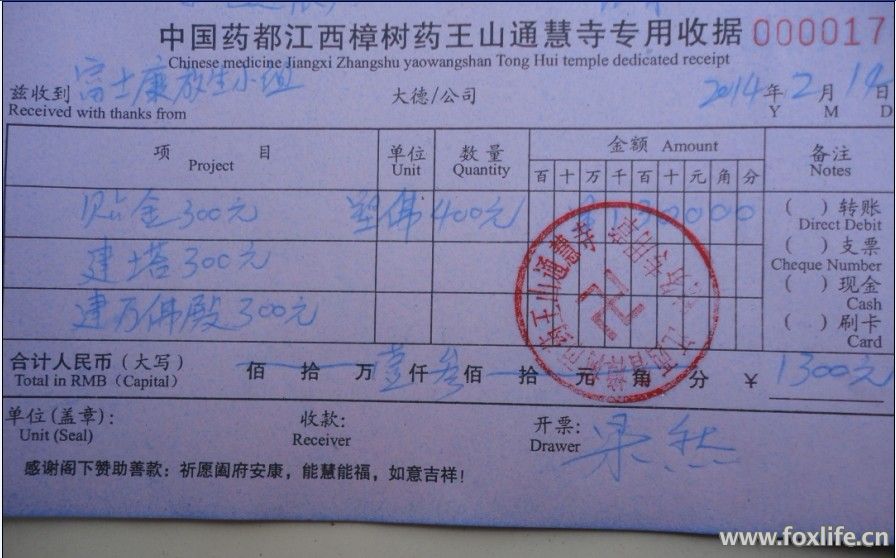 中国药都江西樟树药王山通慧寺专用收据 000017
Chinese medicine Jiangxi Zhangshu yaowangshan Tong Hui temple dedicated receipt
兹收到 富士康放生小组 大德/公司 2014年2月19日
Received with thanks from Y M D
项 目 单位 数量 金额 Amount 备注
Project Unit Quantity 百 十 万 千 百 十 元 角 分 Notes
贴金300元 塑佛400元 130000 ( ) 转账
Direct Debit
建塔300元 ( ) 支票
Cheque Number
( ) 现金
Cash
建万佛殿300元 ( ) 刷卡
Card
合计人民币(大写) 佰 拾 万 壹 仟 叁 佰 拾 元 角 分 ¥ 1300元
Total in RMB (Capital)
单位(盖章): 收款: 开票: 梁
Unit (Seal) Receiver Drawer
感谢阁下赞助善款:祈愿阖府安康,能慧能福,如意吉祥!
药王山通慧寺
www.foxlife.cn